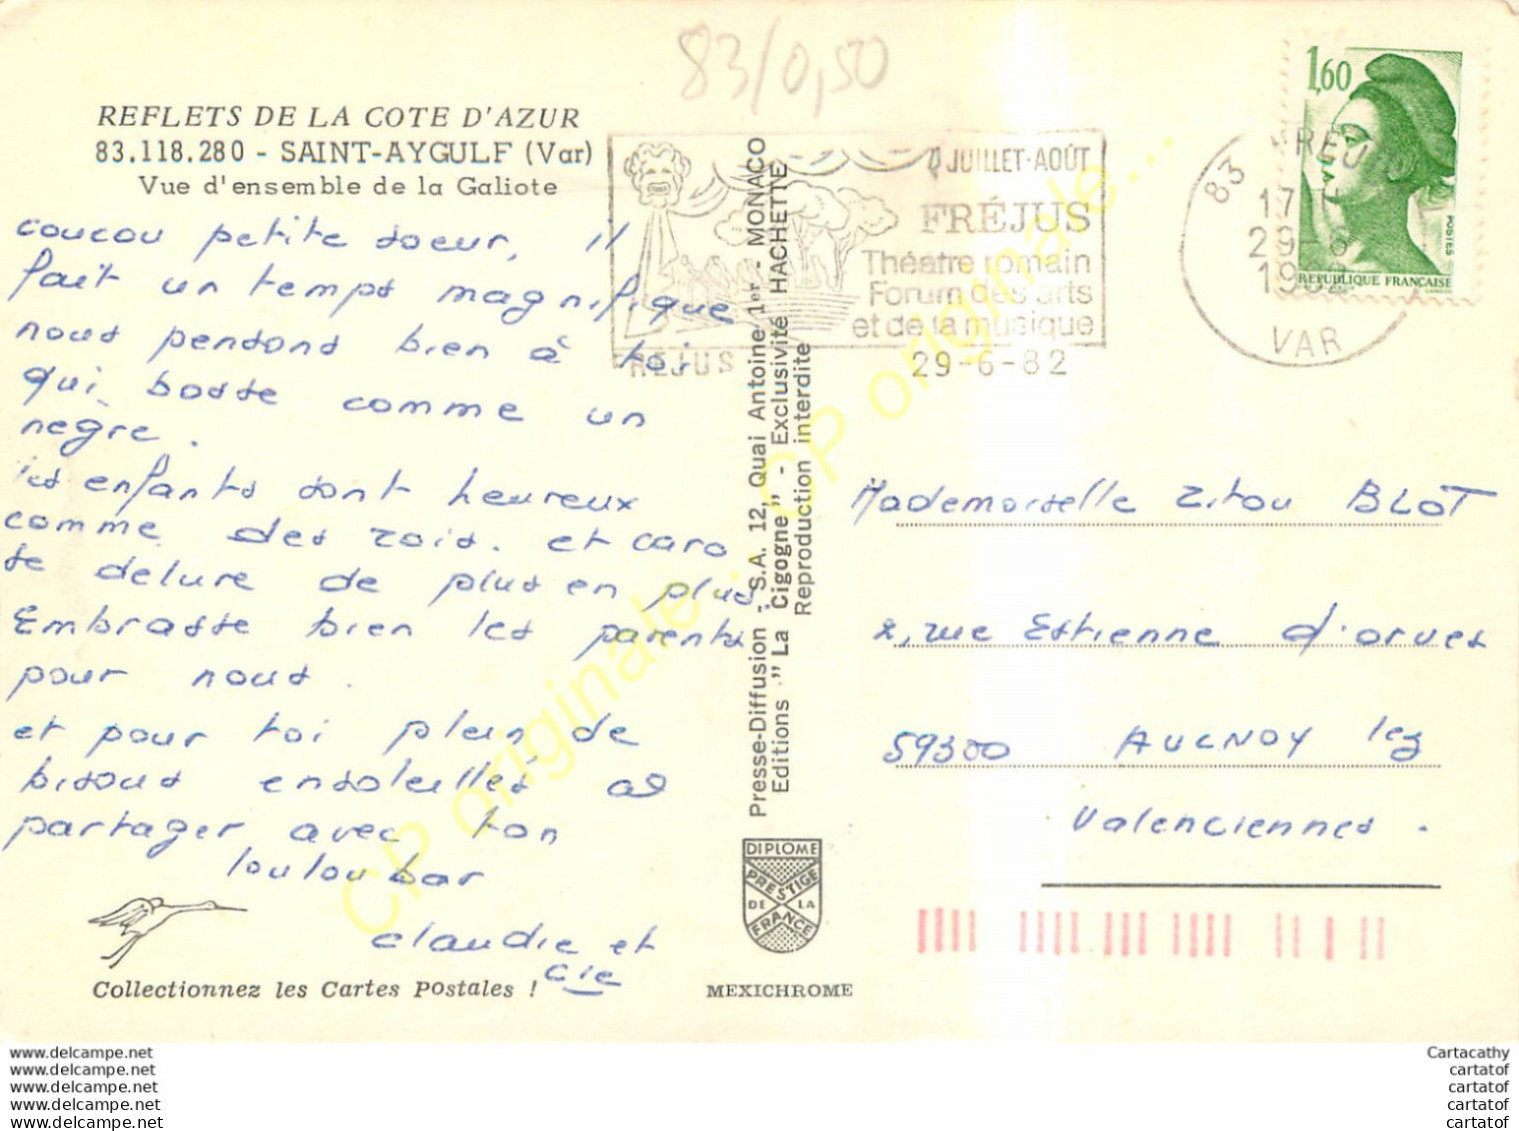 83/0,50
REFLETS DE LA COTE D'AZUR
83.118.280 - SAINT-AYGULF (Var)
Vue d'ensemble de la Galiote
coucou petite soeur, il
fait un temps magnifique
nous pensons bien à toi
qui bosse comme un
negre.
les enfants sont heureux
comme des rois. et caro
se delure de plus en plus.
Embrasse bien les parents
pour nous.
et pour toi plein de
bisous ensoleilles a
partager avec ton
louloubar
claudie et
cie
Collectionnez les Cartes Postales !
Presse-Diffusion - S.A. 12, Quai Antoine 1er - MONACO
Editions "La Cigogne" - Exclusivité HACHETTE
Reproduction interdite
DIPLOME
PRESTIGE
DE LA
FRANCE
MEXICHROME
JUILLET-AOÛT
FRÉJUS
Théatre romain
Forum des arts
et de la musique
REJUS 29-6-82
83 FREJUS
17 H
29-6
1982
VAR
1,60
POSTES
REPUBLIQUE FRANÇAISE
Mademoiselle Zitou BLOT
2, rue Estienne d'orves
59300 AULNOY lez
Valenciennes.
CP originale... CP originale...
www.delcampe.net
www.delcampe.net
www.delcampe.net
www.delcampe.net
www.delcampe.net
Cartacathy
cartatof
cartatof
cartatof
cartatof